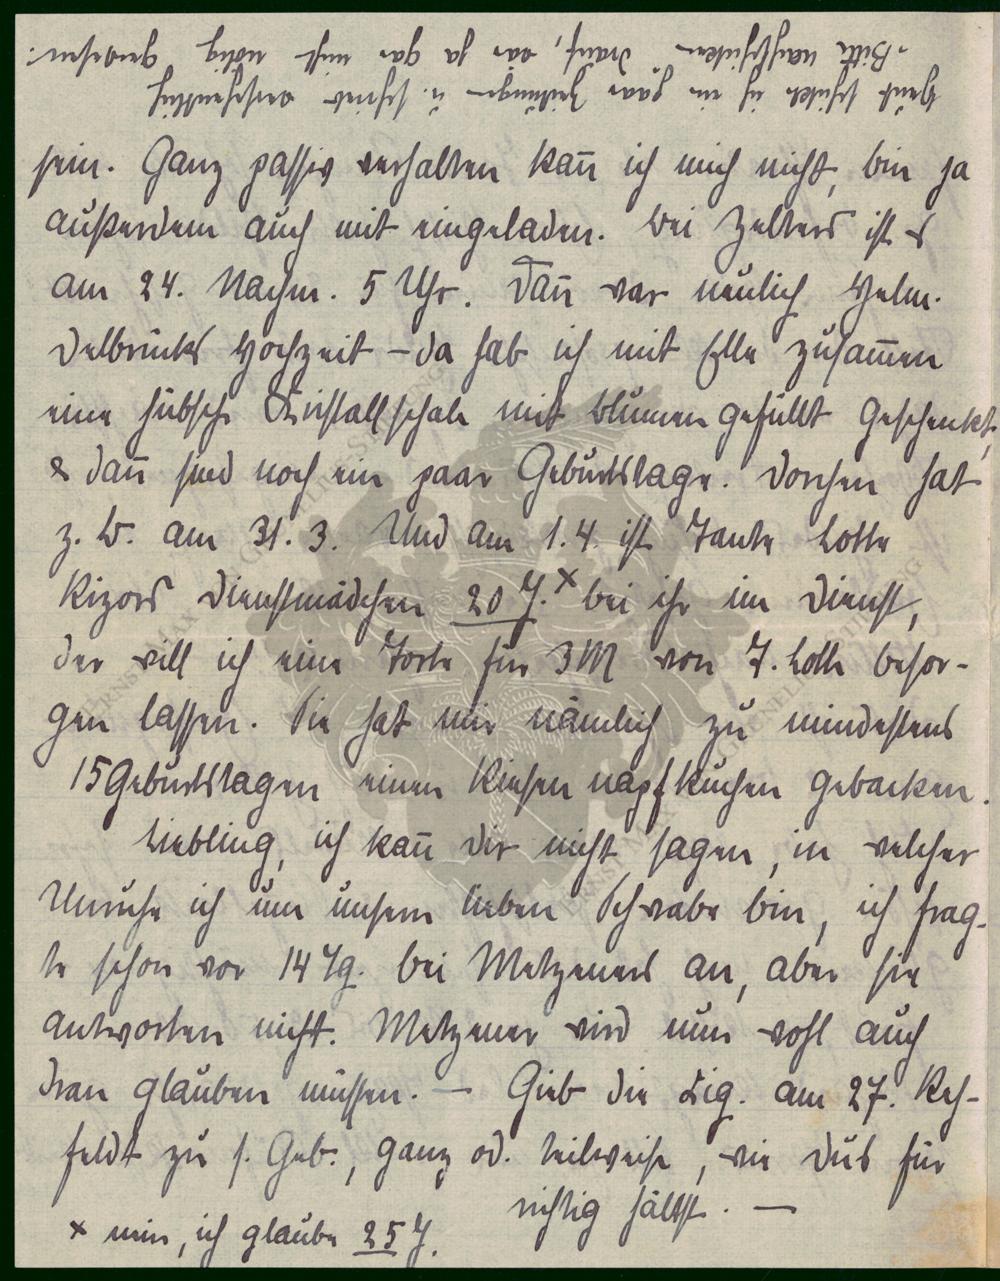 Heut schickte ich ein paar Zeitungen u. schrieb versehentlich
„Bitte nachschicken“ drauf, war ja gar nicht nötig gewesen.
sein. Ganz passiv verhalten kan̄ ich mich nicht, bin ja
außerdem auch mit eingeladen. Bei Zelters ist es
am 24. Nachm. 5 Uhr. Dan̄ war neulich Helm.
Delbrücks Hochzeit – da hab ich mit Elle zusam̄en
eine hübsche Kristallschale mit Blumen gefüllt geschenkt,
& dan̄ sind noch ein paar Geburtstage. Dorchen hat
z. B. am 31. 3. Und am 1. 4. ist Tante Lotte
Rizors Dienstmädchen 20 J.x bei ihr im Dienst,
der will ich eine Torte für 3 M von T. Lotte besor-
gen lassen. Sie hat mir nämlich zu mindestens
15 Geburtstagen einen Riesennapfkuchen gebacken.
Liebling, ich kan̄ Dir nicht sagen, in welcher
Unruhe ich um unsern lieben Schwabe bin, ich frag-
te schon vor 14 Tg. bei Metzeners an, aber sie
antworten nicht. Metzener wird nun wohl auch
dran glauben müssen. — Gieb die Zig. am 27. Reh-
feldt zu s. Geb., ganz od. teilweise, wie Du's für
richtig hältst. —
x nein, ich glaube 25 J.